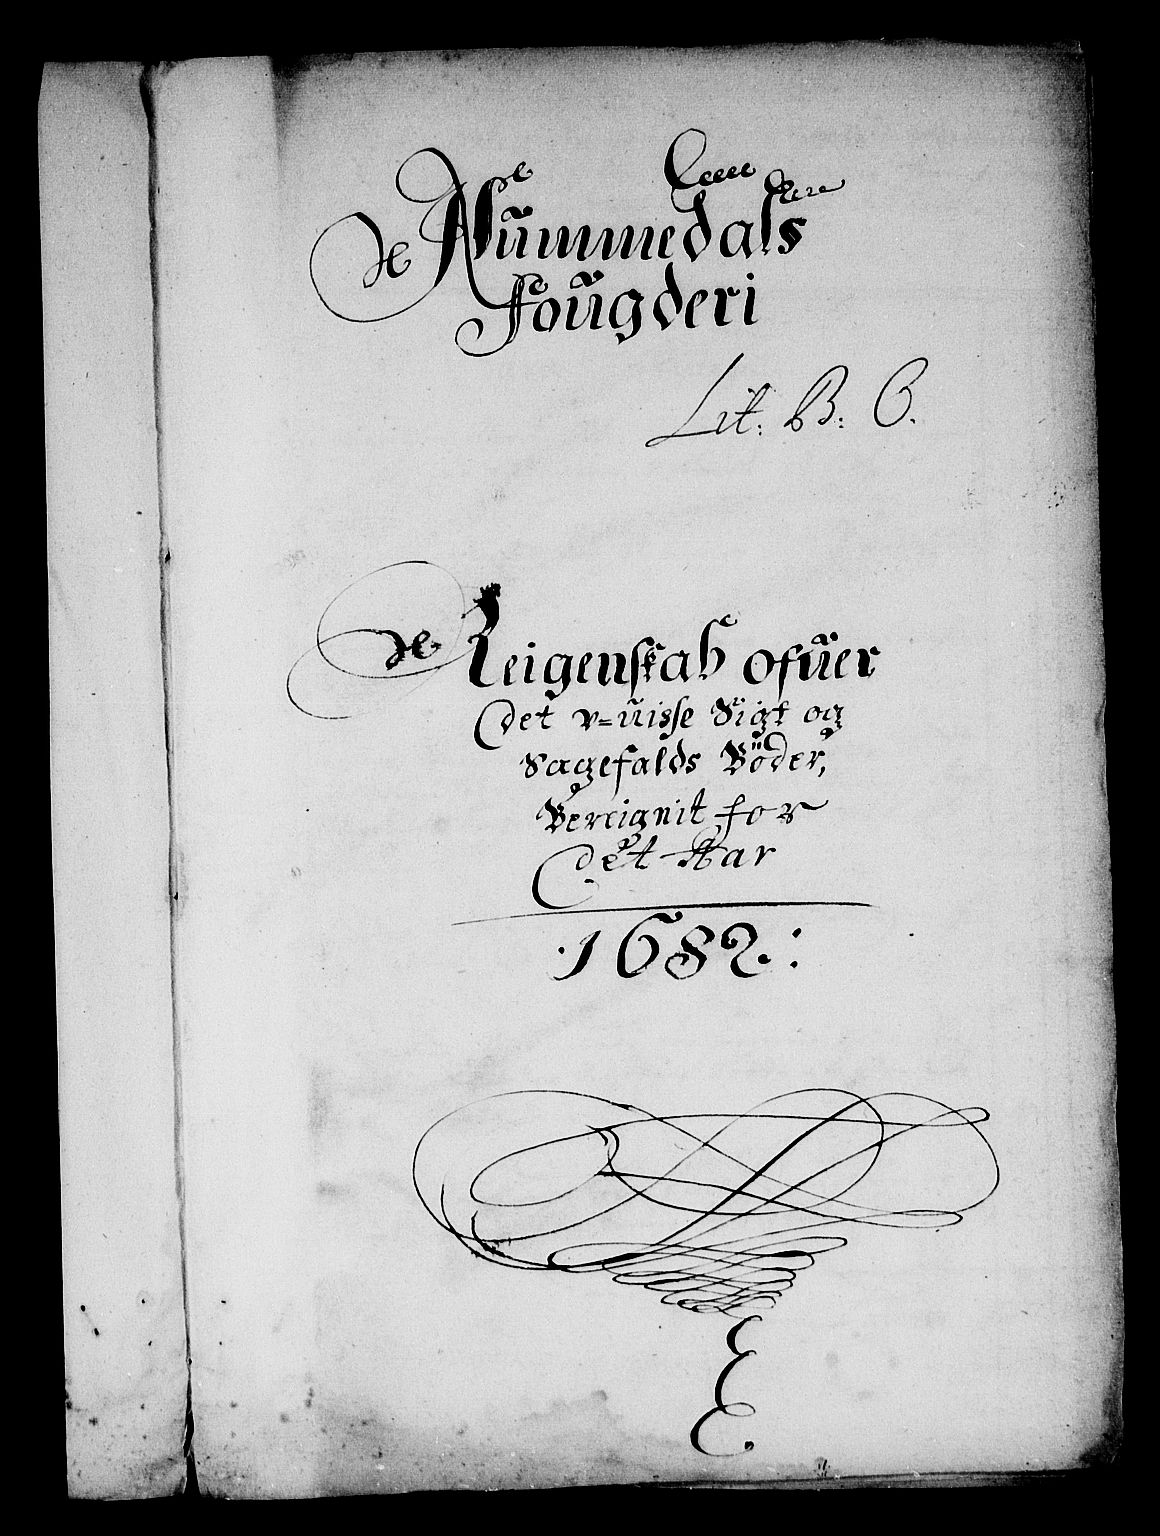 Nummedals
Fougderi
Lit. B: C.
Reigenskab ofüer
det v=üisse Sigt og
Sagefalds Böder,
Bereignit for
det Aar
1682: